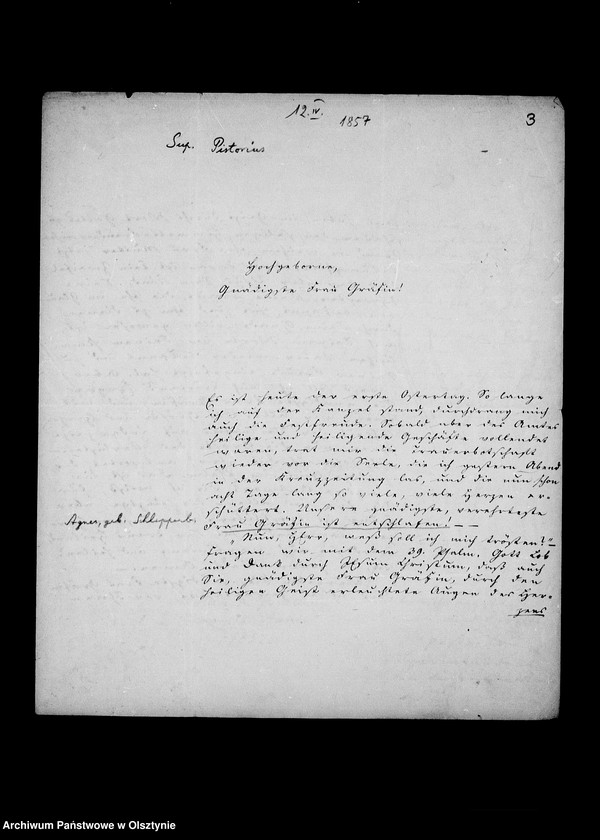 12. IV. 1857
3
Sup. Pistorius
Hochgeborne,
Gnädigste Frau Gräfin!
Es ist heute der erste Ostertag. So lange
ich auf der Kanzel stand, durchdrang mich
auch die Festfreude. Sobald aber des Amtes
heilige und heiligende Geschäfte vollendet
waren, trat mir die Trauerbotschaft
wieder vor die Seele, die ich gestern Abend
in der Kreuzzeitung las, und die nun schon
acht Tage lang so viele, viele Herzen er-
schüttert. Unsere gnädigste, verehrteste
Frau Gräfin ist entschlafen! — —
Agnes, geb.
„Nun, Herr, weß soll ich mich trösten?"
fragen wir mit dem 39. Psalm. Gott Lob
und Dank durch Jesum Christum, daß auch
Sie, gnädigste Frau Gräfin, durch den
heiligen Geist erleuchtete Augen des Her-
zens
Archiwum Państwowe w Olsztynie